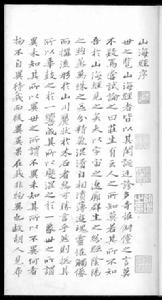 山海經序
世之覽山海經者皆以其閎誕迂誇多奇怪俶儻之言莫
不疑焉嘗試論之曰莊生有云人之所知莫若其所不知
吾於山海經見之矣夫以宇宙之寥廓群生之紛紜陰陽
之煦蒸萬殊之區分精氣渾淆自相濆薄遊魂靈怪觸像
而構流形於山川麗狀於木石者惡可勝言乎然則總其
所以乖鼓之於一響成其所以變混之於一象世之所謂
異未知其所以異世之所謂不異未知其所以不異何者
物不自異待我而後異異果在我非物異也故胡人見布